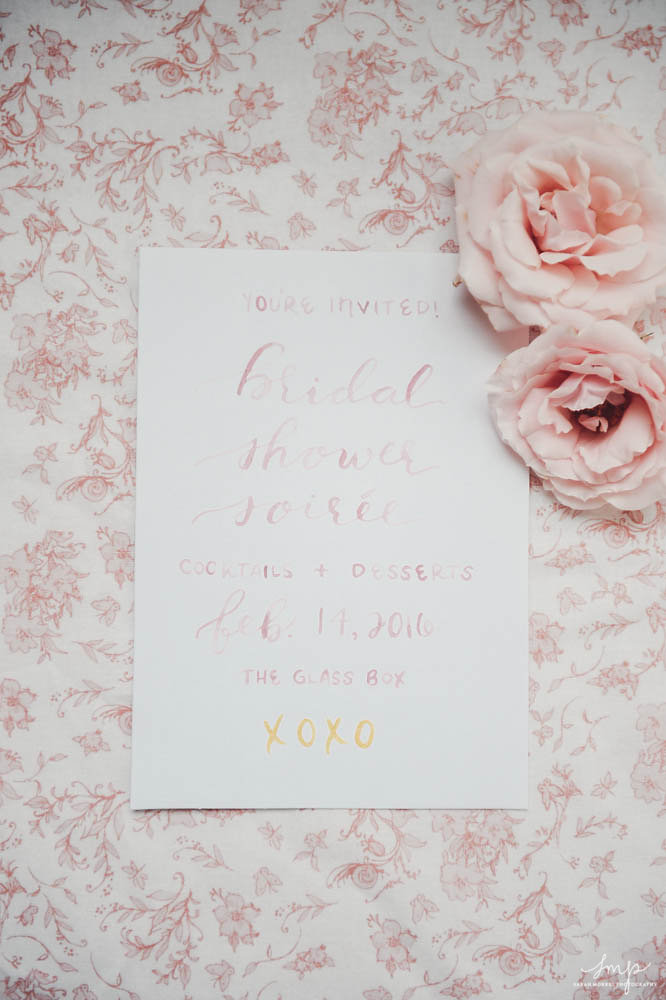 YOU'RE INVITED!
bridal
shower
soirée
COCKTAILS + DESSERTS
feb. 14, 2016
THE GLASS BOX
XOXO
smp
PHOTOGRAPHY